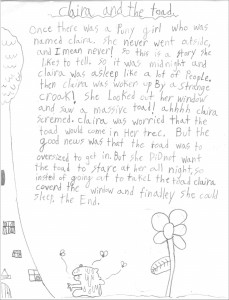 claira and the toad
Once there was a Puny girl who was
named claira. she never went outside,
and I mean never! so this is a story she
likes to tell. So it was midnight and
claira was asleep like a lot of People.
then claira was woken up By a strange
croak! She Looked out her window
and saw a massive toad! ahhhh claira
scremed. claira was worried that the
toad would come in Her tree. But the
good news was that the toad was to
oversized to get in. But she DiDnot want
the toad to stare at her all night, so
insted of going out to tackel the toad claira
coverd the window and finalley she could
sleep. the End.